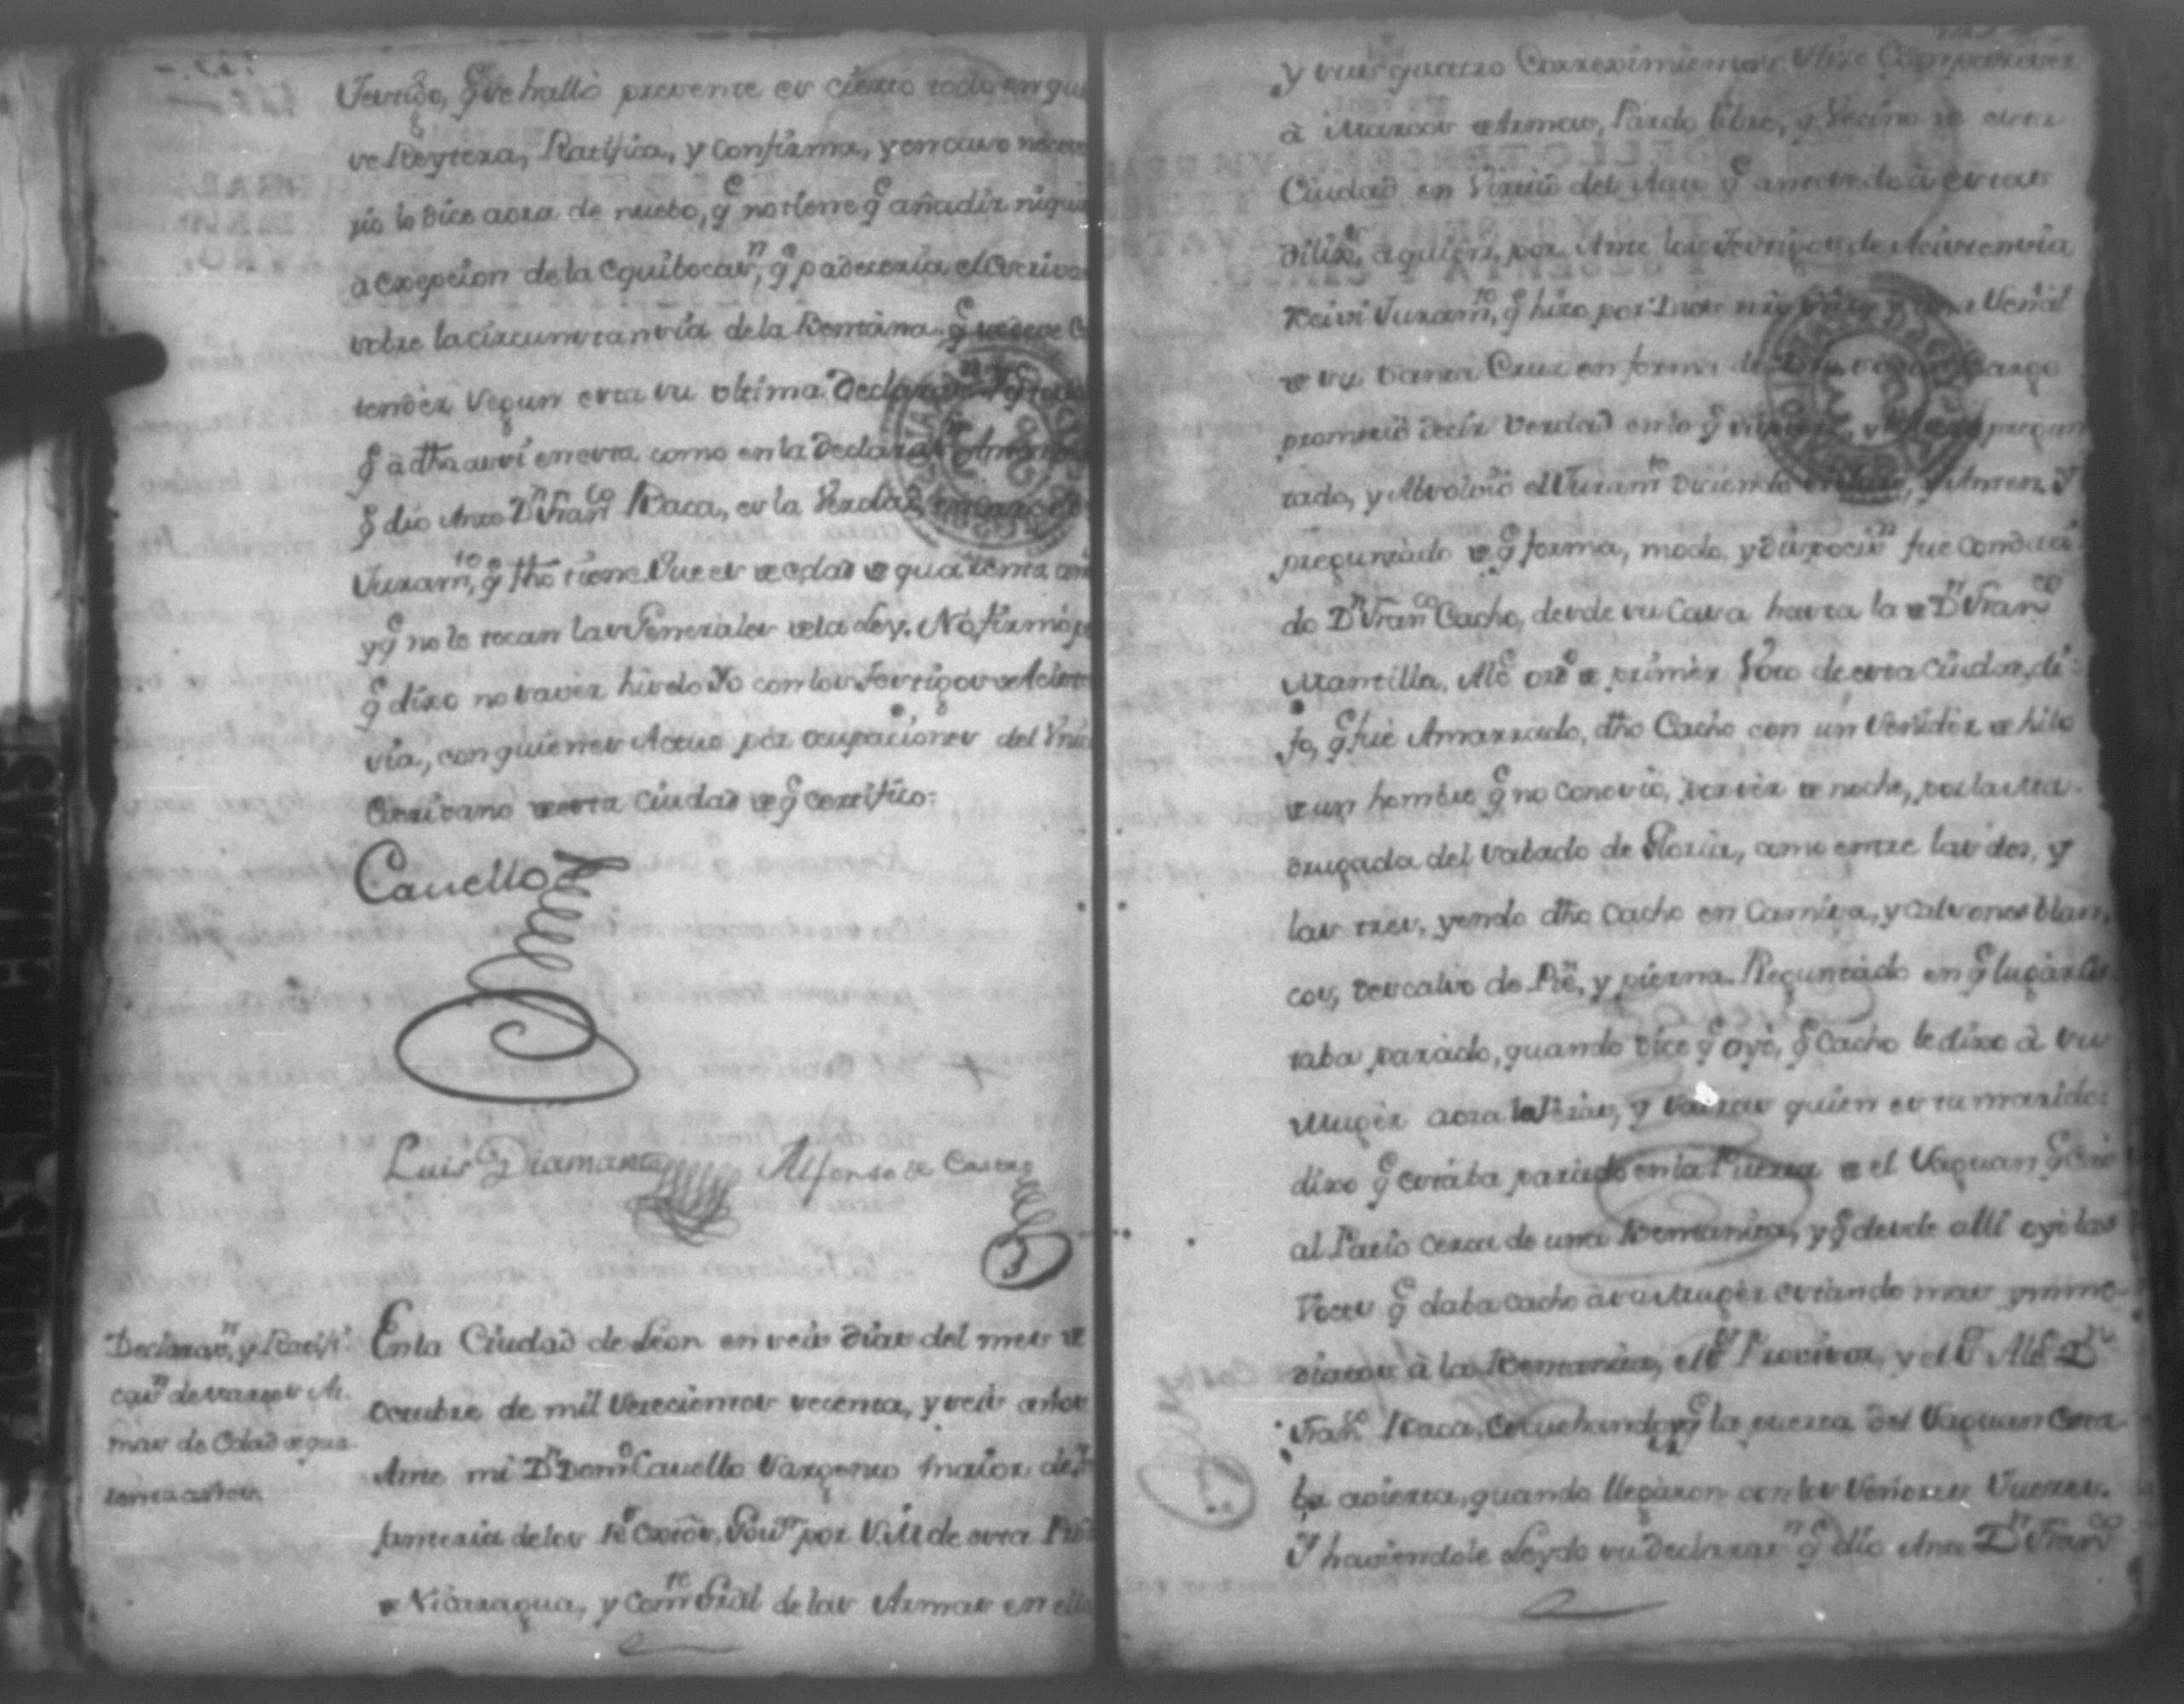 Testigo, q.e se halló presente es cierto todo en que
se Reytera, Ratifica, y confirma, y en caso neces
rio lo dice aora de nuebo, q.e no tiene q.e añadir ni qui
à exepcion de la equibocas.n, q.e padeseria el Escriva
sobre la circumstansia de la Bentana. q.e se deve E
tender segun esta su ultima Declaras.n
q.e à dho assi en esta como en la Declaras.n Ante
q.e dio Ante D.n Fran.co Vaca, es la Verdad, en cargo de
Juram.to, q.e fho tiene Que es de edad de quarenta añ
y q.e no le tocan las Generales de la Ley. No firmó p
q.e dixo no saver hisdo Yo con los Testigos de Acisten
sia, con quienes Actuo por ocupaciones del Vnic
Escrivano de esta Ciudad de q.e certifico:
Cavello
Luis Diamante Alfonso de Castro
Declaras.n, y Ratifi-
cas.n de Marcos Ar-
mas de Edad de qua-
renta años.
En la Ciudad de Leon en seis dias del mes de
Octubre de mil setecientos secenta, y seis años
Ante mi D.n Dom.o Cavello Sargento maior de Yn
fanteria de los R.s Exttos, Gov.r por S.M. de esta Pro
de Nicaragua, y Com.te Gral de las Armas en ella
y sus quatro Correximientos. Hize Comparecer
à Marcos de Armas, Pardo libre, y Vecino de esta
Ciudad en Virtud del Auto q.e antecede à estas
dilix.s, a quien, por Ante los Testigos de Acistensia
Reivi Juram.to, q.e hizo por Dios nro Señor y una Señal
de su Santa Cruz en forma de cargo
prometió decir Verdad en lo q.e supiere, y fuere pregun
tado, y Absolvió el Juram.to diciendo si Juro, y Amen. Y
preguntado de q.e forma, modo, y disposis.n fue Conduci
do D.n Fran.co Cacho, desde su Casa hasta la de D.n Fran.co
Mantilla, Alc.e ord.o de primer Voto de esta Ciudad, di-
jo, q.e fue Amarrado, dho Cacho con un Señidor de hilo
de un hombre q.e no conosio, por ser de noche, por la Ma-
drugada del sabado de Gloria, como entre las dos, y
las tres, yendo dho Cacho en Camisa, y calsones blan-
cos, descalso de Pie, y pierna. Reguntado en q.e lugar Es
taba parado, quando dice q.e oyó, q.e Cacho le dixo à su
Muger aora lo Veras, y Sabras quien es tu marido:
dixo q.e estaba parado en la Puerta de el Saguan q.e cae
al Patio cerca de una Bentanita, y q.e desde alli oyó las
Voces q.e daba Cacho à su Muger estando mas ynme-
diatos à la Bentanita, el S.r Provisor, y el S.r Alc.e D.n
Fran.co Vaca, Escuchando, y q.e la puerta del Saguan Esta
ba avierta, quando llegaron con los Señores Jueces.
Y haviendole Leydo su Declaras.n q.e dio Ante D.n Fran.co